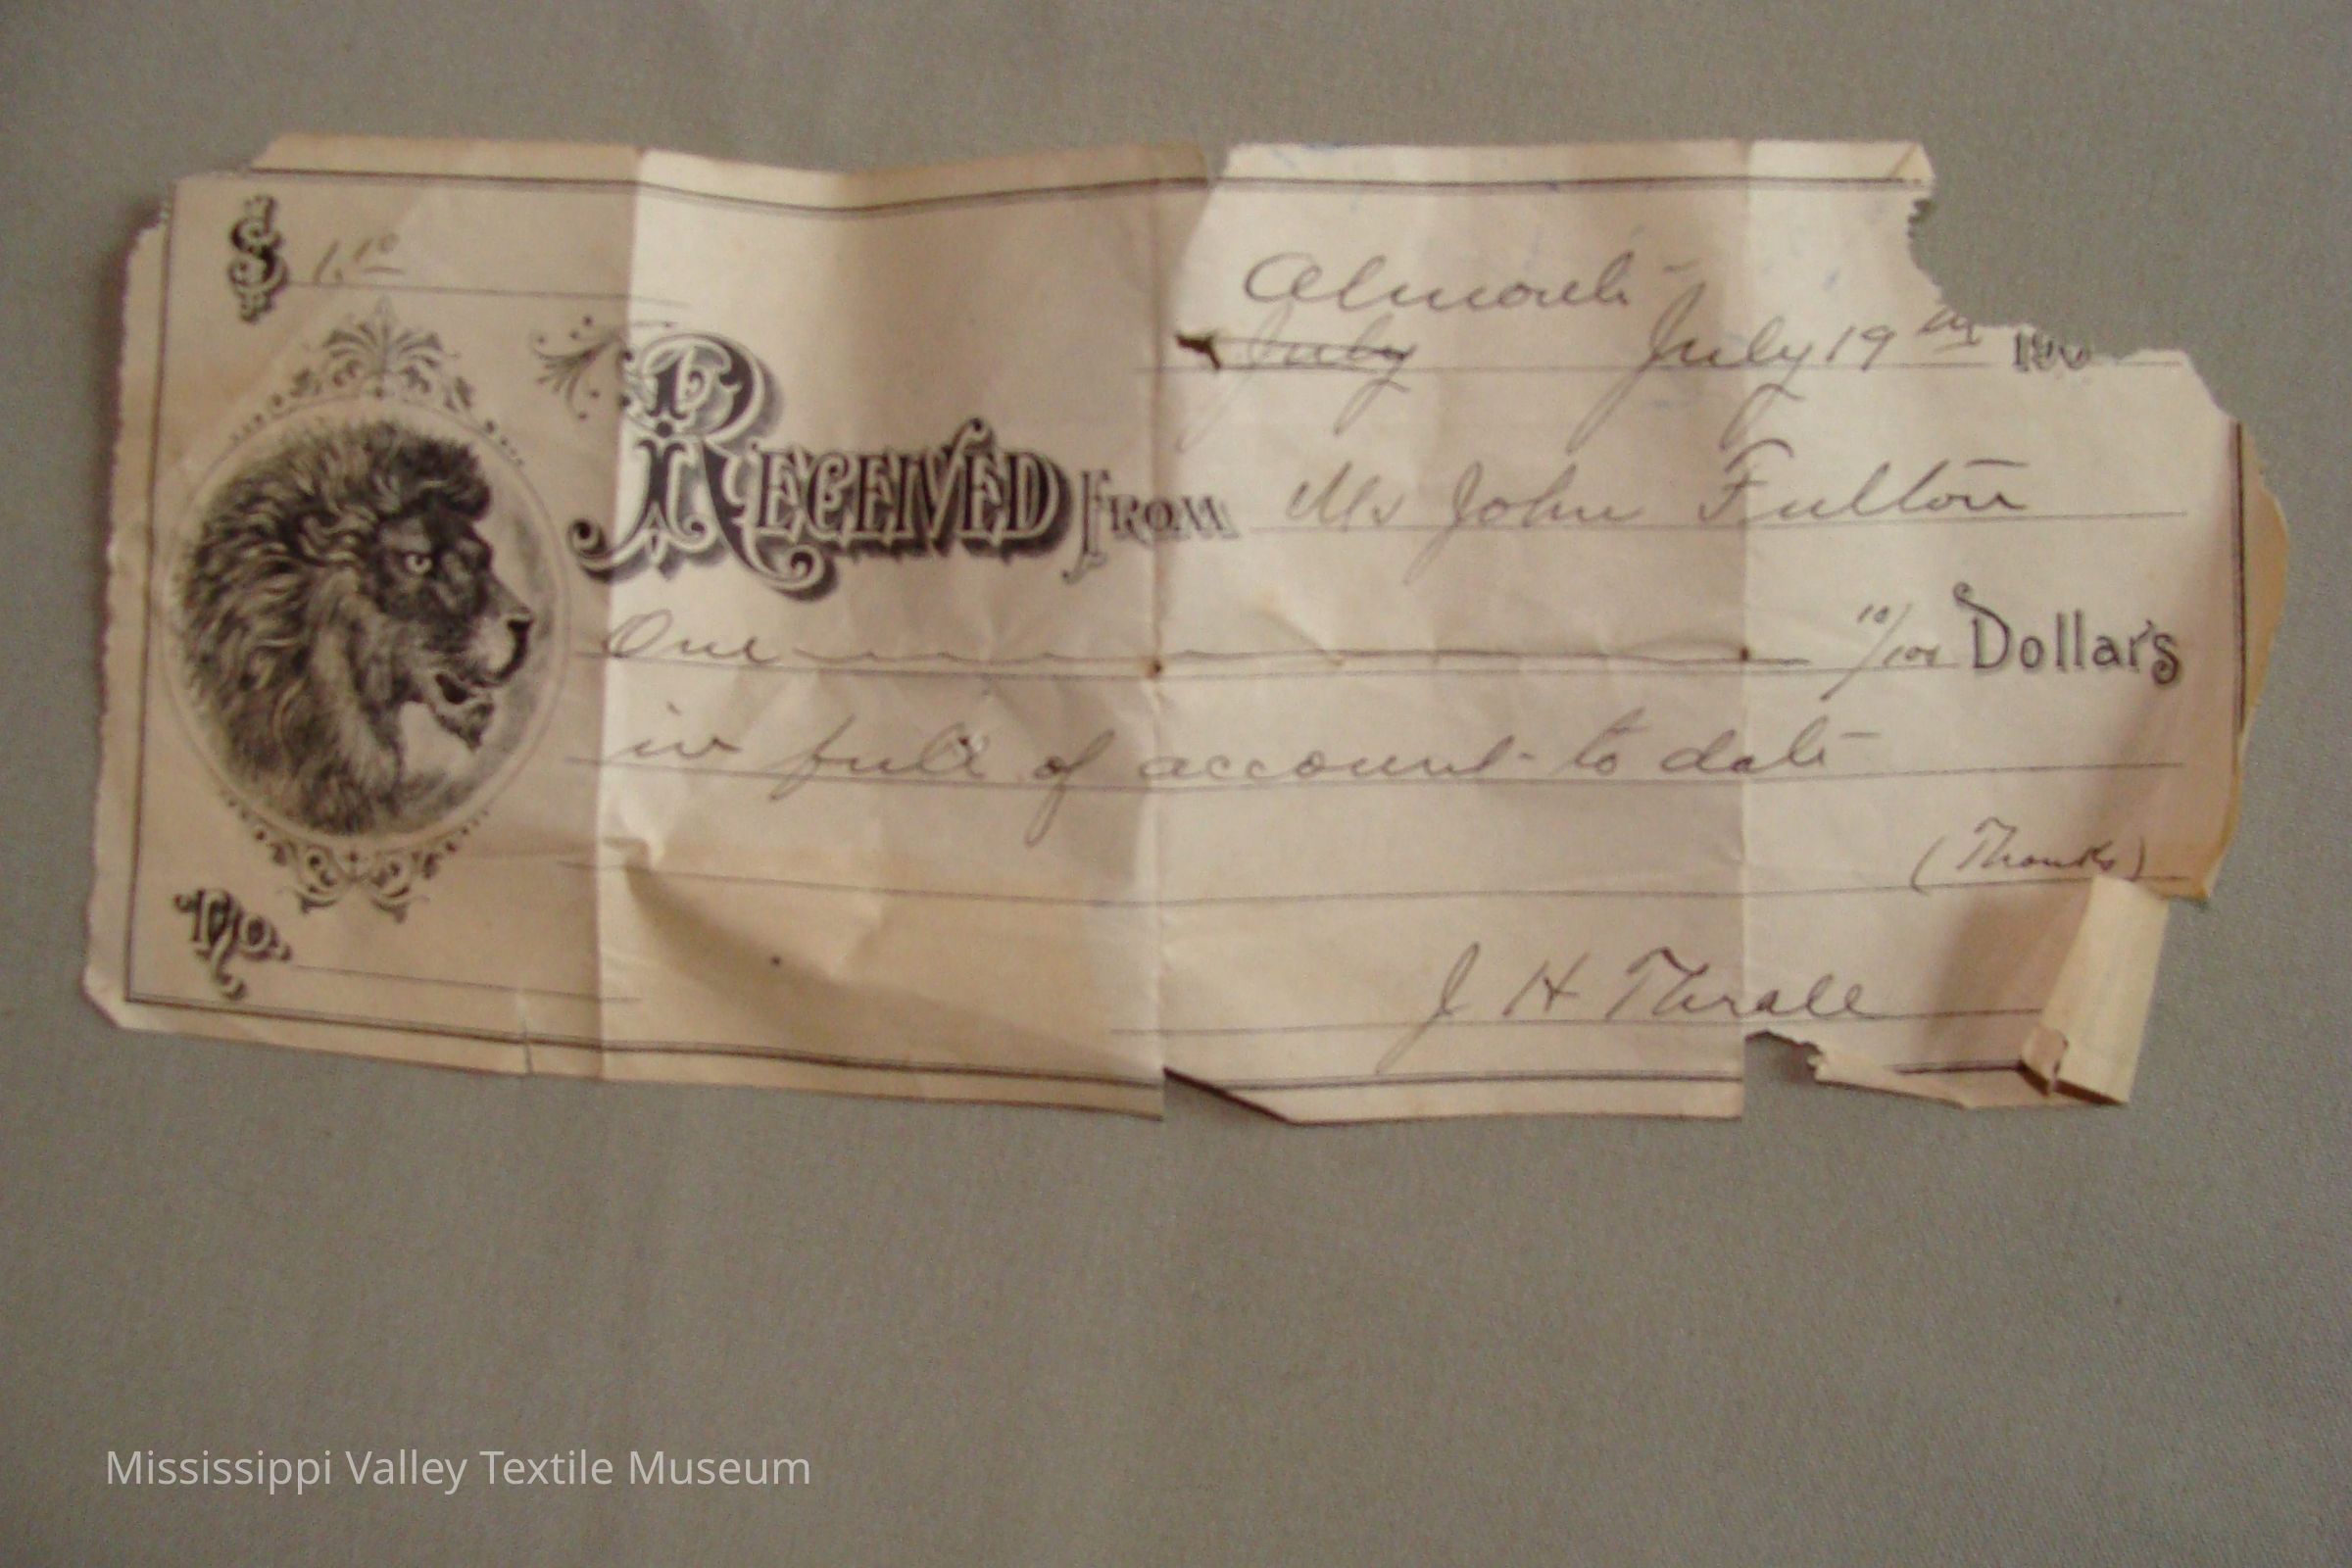 $ 1.10
Almonte
July July 19th 190
Received From Mr John Fulton
One 10/100 Dollars
in full of account to date
(Thanks)
No.
J H Thrall
Mississippi Valley Textile Museum